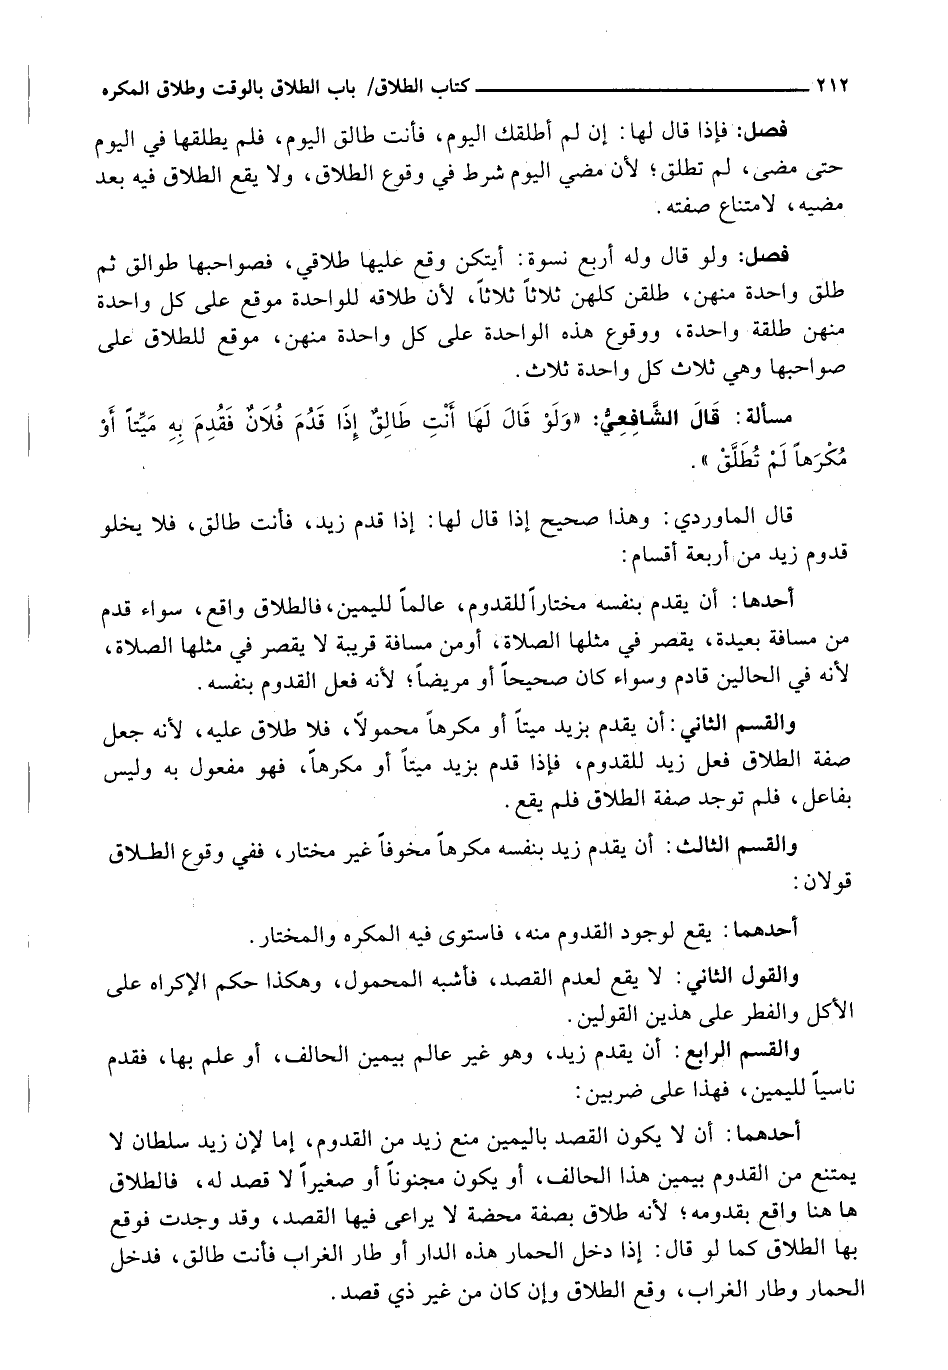 ٢١٢ ــــــــــــــــــــــــــــــ كتاب الطلاق/ باب الطلاق بالوقت وطلاق المكره
فصل: فإذا قال لها: إن لم أطلقك اليوم، فأنت طالق اليوم، فلم يطلقها في اليوم
حتى مضى، لم تطلق؛ لأن مضي اليوم شرط في وقوع الطلاق، ولا يقع الطلاق فيه بعد
مضيه، لامتناع صفته.
فصل: ولو قال وله أربع نسوة: أيتكن وقع عليها طلاقي، فصواحبها طوالق ثم
طلق واحدة منهن، طلقن كلهن ثلاثاً ثلاثاً، لأن طلاقه للواحدة موقع على كل واحدة
منهن طلقة واحدة، ووقوع هذه الواحدة على كل واحدة منهن، موقع للطلاق على
صواحبها وهي ثلاث كل واحدة ثلاث.
مسألة: قَالَ الشَّافِعِيُّ: «وَلَوْ قَالَ لَهَا أَنْتِ طَالِقٌ إِذَا قَدُمَ فُلَانٌ فَقُدِمَ بِهِ مَيِّتاً أَوْ
مُكْرَهاً لَمْ تُطَلَّقْ».
قال الماوردي: وهذا صحيح إذا قال لها: إذا قدم زيد، فأنت طالق، فلا يخلو
قدوم زيد من أربعة أقسام:
أحدها: أن يقدم بنفسه مختاراً للقدوم، عالماً لليمين، فالطلاق واقع، سواء قدم
من مسافة بعيدة، يقصر في مثلها الصلاة، أومن مسافة قريبة لا يقصر في مثلها الصلاة،
لأنه في الحالين قادم وسواء كان صحيحاً أو مريضاً؛ لأنه فعل القدوم بنفسه.
والقسم الثاني: أن يقدم بزيد ميتاً أو مكرهاً محمولاً، فلا طلاق عليه، لأنه جعل
صفة الطلاق فعل زيد للقدوم، فإذا قدم بزيد ميتاً أو مكرهاً، فهو مفعول به وليس
بفاعل، فلم توجد صفة الطلاق فلم يقع.
والقسم الثالث: أن يقدم زيد بنفسه مكرهاً مخوفاً غير مختار، ففي وقوع الطلاق
قولان:
أحدهما: يقع لوجود القدوم منه، فاستوى فيه المكره والمختار.
والقول الثاني: لا يقع لعدم القصد، فأشبه المحمول، وهكذا حكم الإكراه على
الأكل والفطر على هذين القولين.
والقسم الرابع: أن يقدم زيد، وهو غير عالم بيمين الحالف، أو علم بها، فقدم
ناسياً لليمين، فهذا على ضربين:
أحدهما: أن لا يكون القصد باليمين منع زيد من القدوم، إما لإن زيد سلطان لا
يمتنع من القدوم بيمين هذا الحالف، أو يكون مجنوناً أو صغيراً لا قصد له، فالطلاق
ها هنا واقع بقدومه؛ لأنه طلاق بصفة محضة لا يراعى فيها القصد، وقد وجدت فوقع
بها الطلاق كما لو قال: إذا دخل الحمار هذه الدار أو طار الغراب فأنت طالق، فدخل
الحمار وطار الغراب، وقع الطلاق وإن كان من غير ذي قصد.